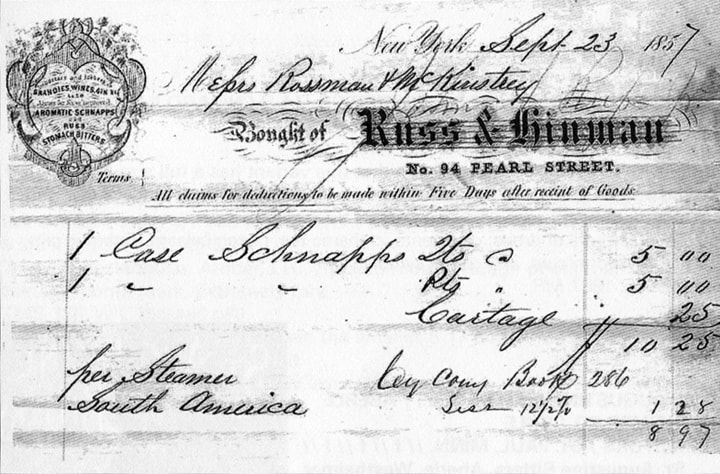 New York Sept 23 1857
Messrs Rossman & McKinstrey
Importers and Jobbers
BRANDIES, WINES, GIN &c
ALSO
AROMATIC SCHNAPPS
AND
RUSS
STOMACH BITTERS
Bought of Russ & Hinman
No. 94 PEARL STREET.
Terms
All claims for deductions to be made within Five Days after receipt of Goods.
1 Case Schnapps Qts @ 5 00
1 " " Pts " 5 00
Cartage 25
10 25
per Steamer By Book 286
South America Less 12½% 1 28
8 97